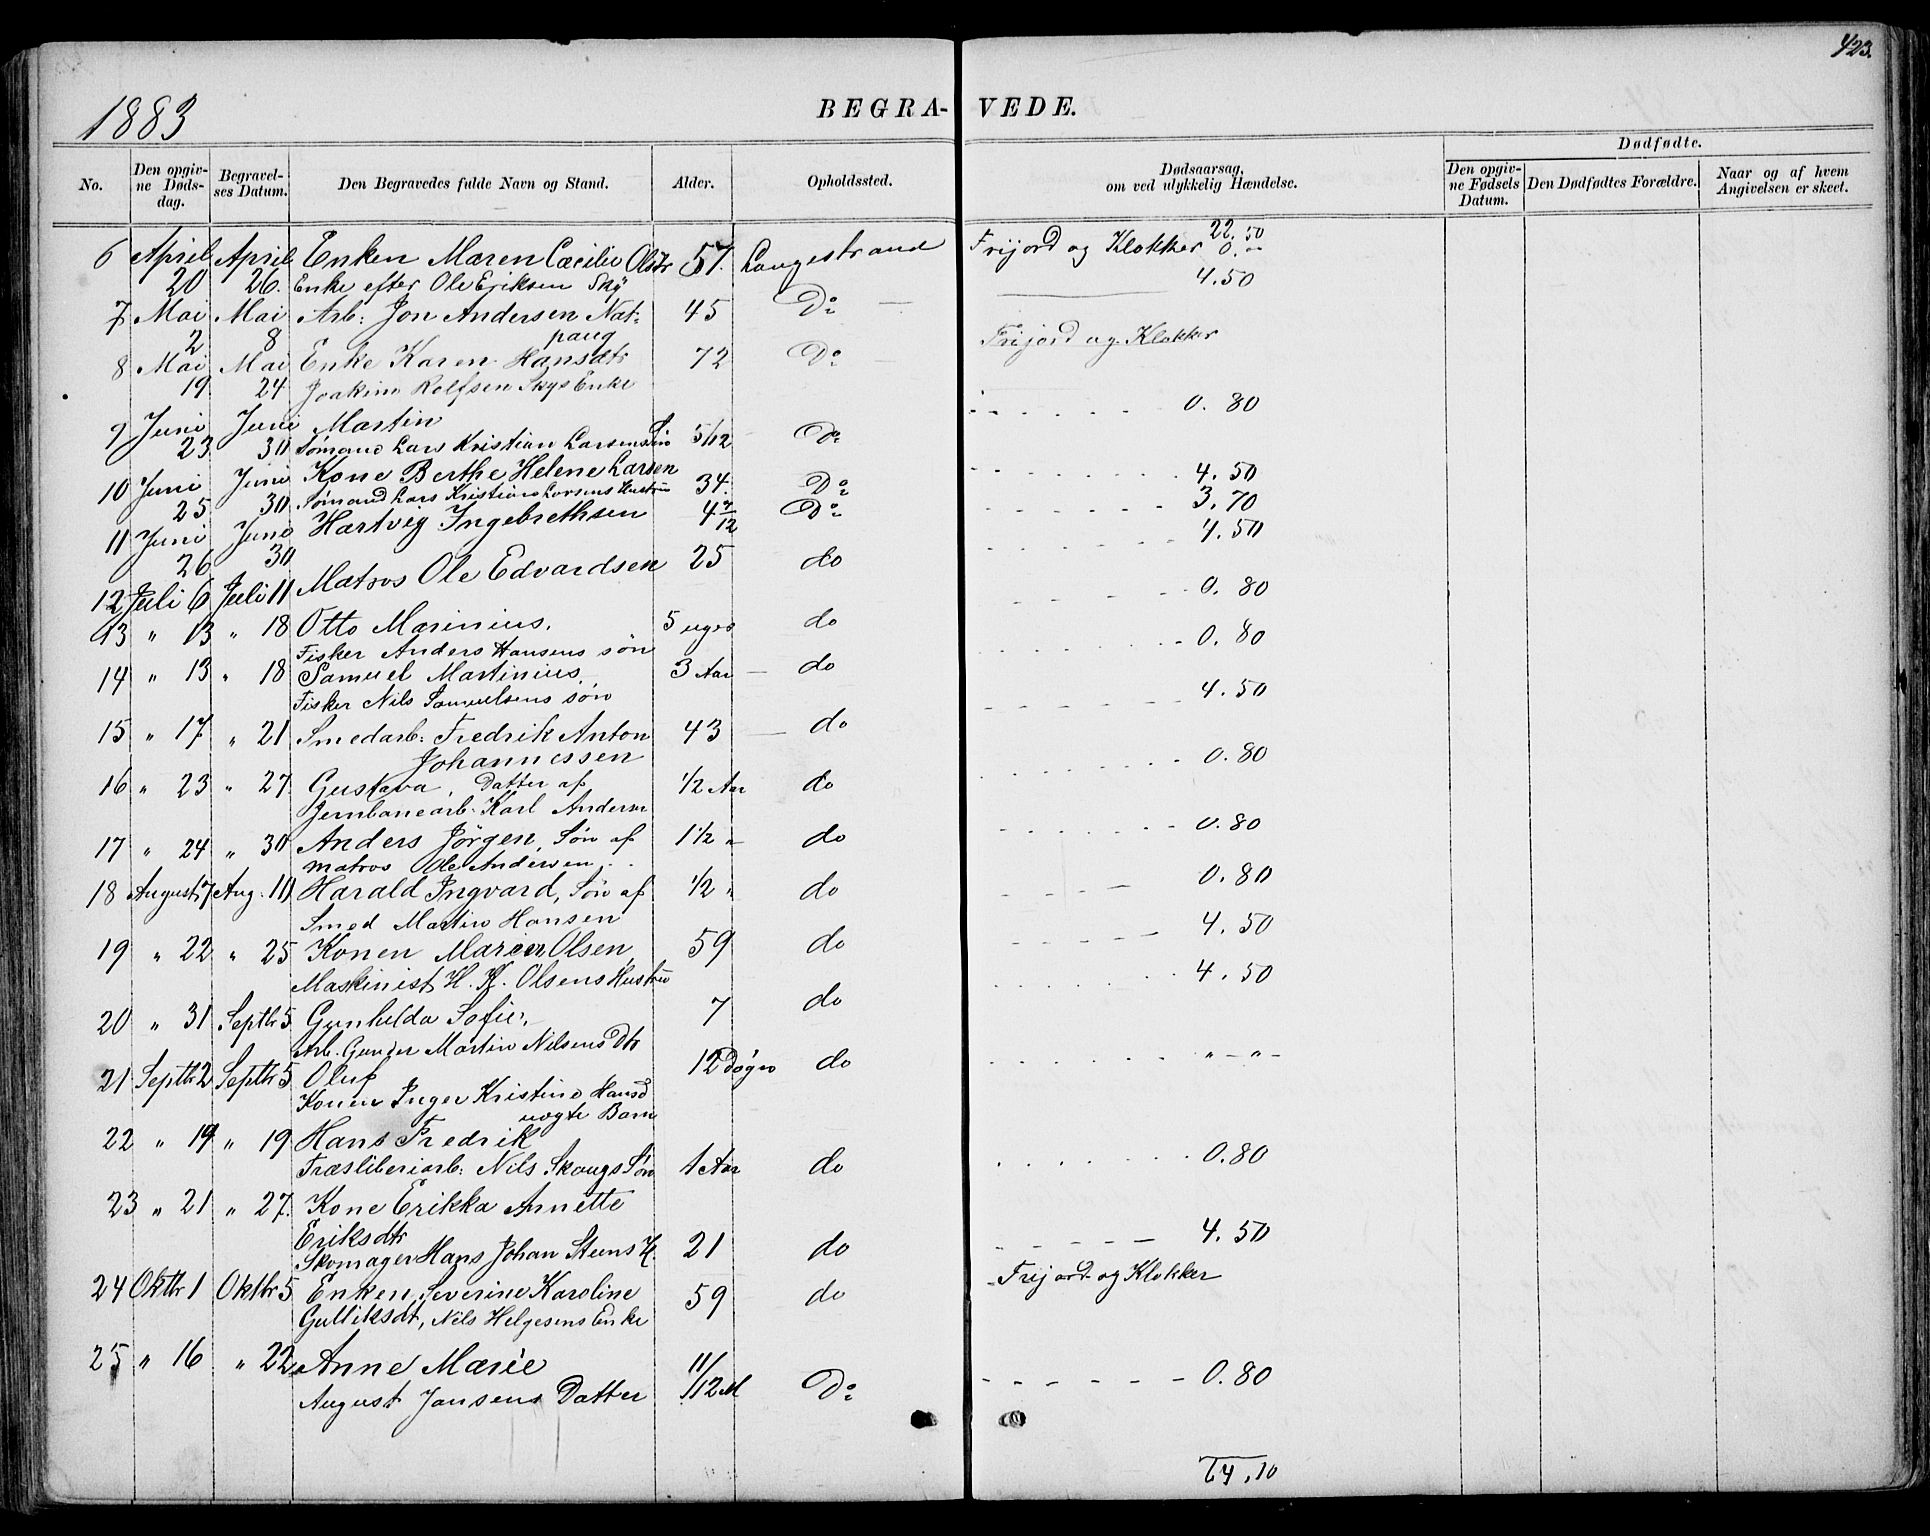 423.
1883
BEGRA- VEDE.
No. Den opgiv-ne Døds-dag. Begravel-ses Datum. Den Begravedes fulde Navn og Stand. Alder. Opholdssted. Dødsaarsag, om ved ulykkelig Hændelse. Dødfødte. Den opgiv-ne Fødsels Datum. Den Dødfødtes Forældre. Naar og af hvem Angivelsen er skeet.
22.50
6 April 20 April 26. Enken Maren Cæcilie Olsdtr 57. Langestrand Frijord og Klokker 0.
Enke efter Ole Eriksen Sky 4.50
7 Mai 2 Mai 8 Arb: Jon Andersen Nat- 45 Do
paug Frijord og Klokker
8 Mai 19 Mai 24 Enke Karen Hansdtr 72 Do
Joakim Rolfsen Skys Enke
9 Juni 23 Juni 30 Martin 5/12 Do 0.80
Sømand Lars Kristian Larsens Søn
10 Juni 25 Juni 30 Kone Berthe Helene Larsen 34. Do 4.50
Sømand Lars Kristian Larsens Hustru
11 Juni 26 Juni 30 Hartvig Ingebrethsen 4 7/12 Do 3.70
12 Juli 6 Juli 11 Matros Ole Edvardsen 25 do 4.50
13 " 13 " 18 Otto Marinius. 5 uger do 0.80
Fisker Anders Hansens søn
14 " 13 " 18 Samuel Martinius. 3 Aar do 0.80
Fisker Nils Samuelsens søn
15 " 17 " 21 Smedarb: Fredrik Anton 43 do 4.50
Johannessen
16 " 23 " 27 Gustava, Datter af 1/2 Aar do 0.80
Jernbanearb. Karl Andersen
17 " 24 " 30 Anders Jörgen, Søn af 1 1/2 " do 0.80
Matros Ole Andersen
18 August 7 Aug. 10 Harald Ingvard, Søn af 1/2 " do 0.80
Smed Martin Hansen
19 " 22 " 25 Konen Maren Olsen 59 do 4.50
Maskinist H. K. Olsens Hustru
20 " 31 Septbr 5 Gunhilda Sofie, 7 do 4.50
Arb. Gunder Martin Nilsens Dtr
21 Septbr 2 Septbr 5 Oluf 12 Døgn do " - " -
Konen Inger Kristine Hansd
uægte Barn
22 " 14 " 19 Hans Fredrik
Træsliberiarb: Nils Skaugs Søn 1 Aar do 0.80
23 " 21 " 27. Kone Erikka Annette
Eriksdtr
Skomager Hans Johan Steens H. 21 do 4.50
24 Oktbr 1 Oktbr 5 Enken Severine Karoline 59 do Frijord og Klokker
Gulliksdt, Nils Helgesens Enke
25 " 16 " 22 Anne Marie 11/12 M Do 0.80
August Jansens Datter
64.10